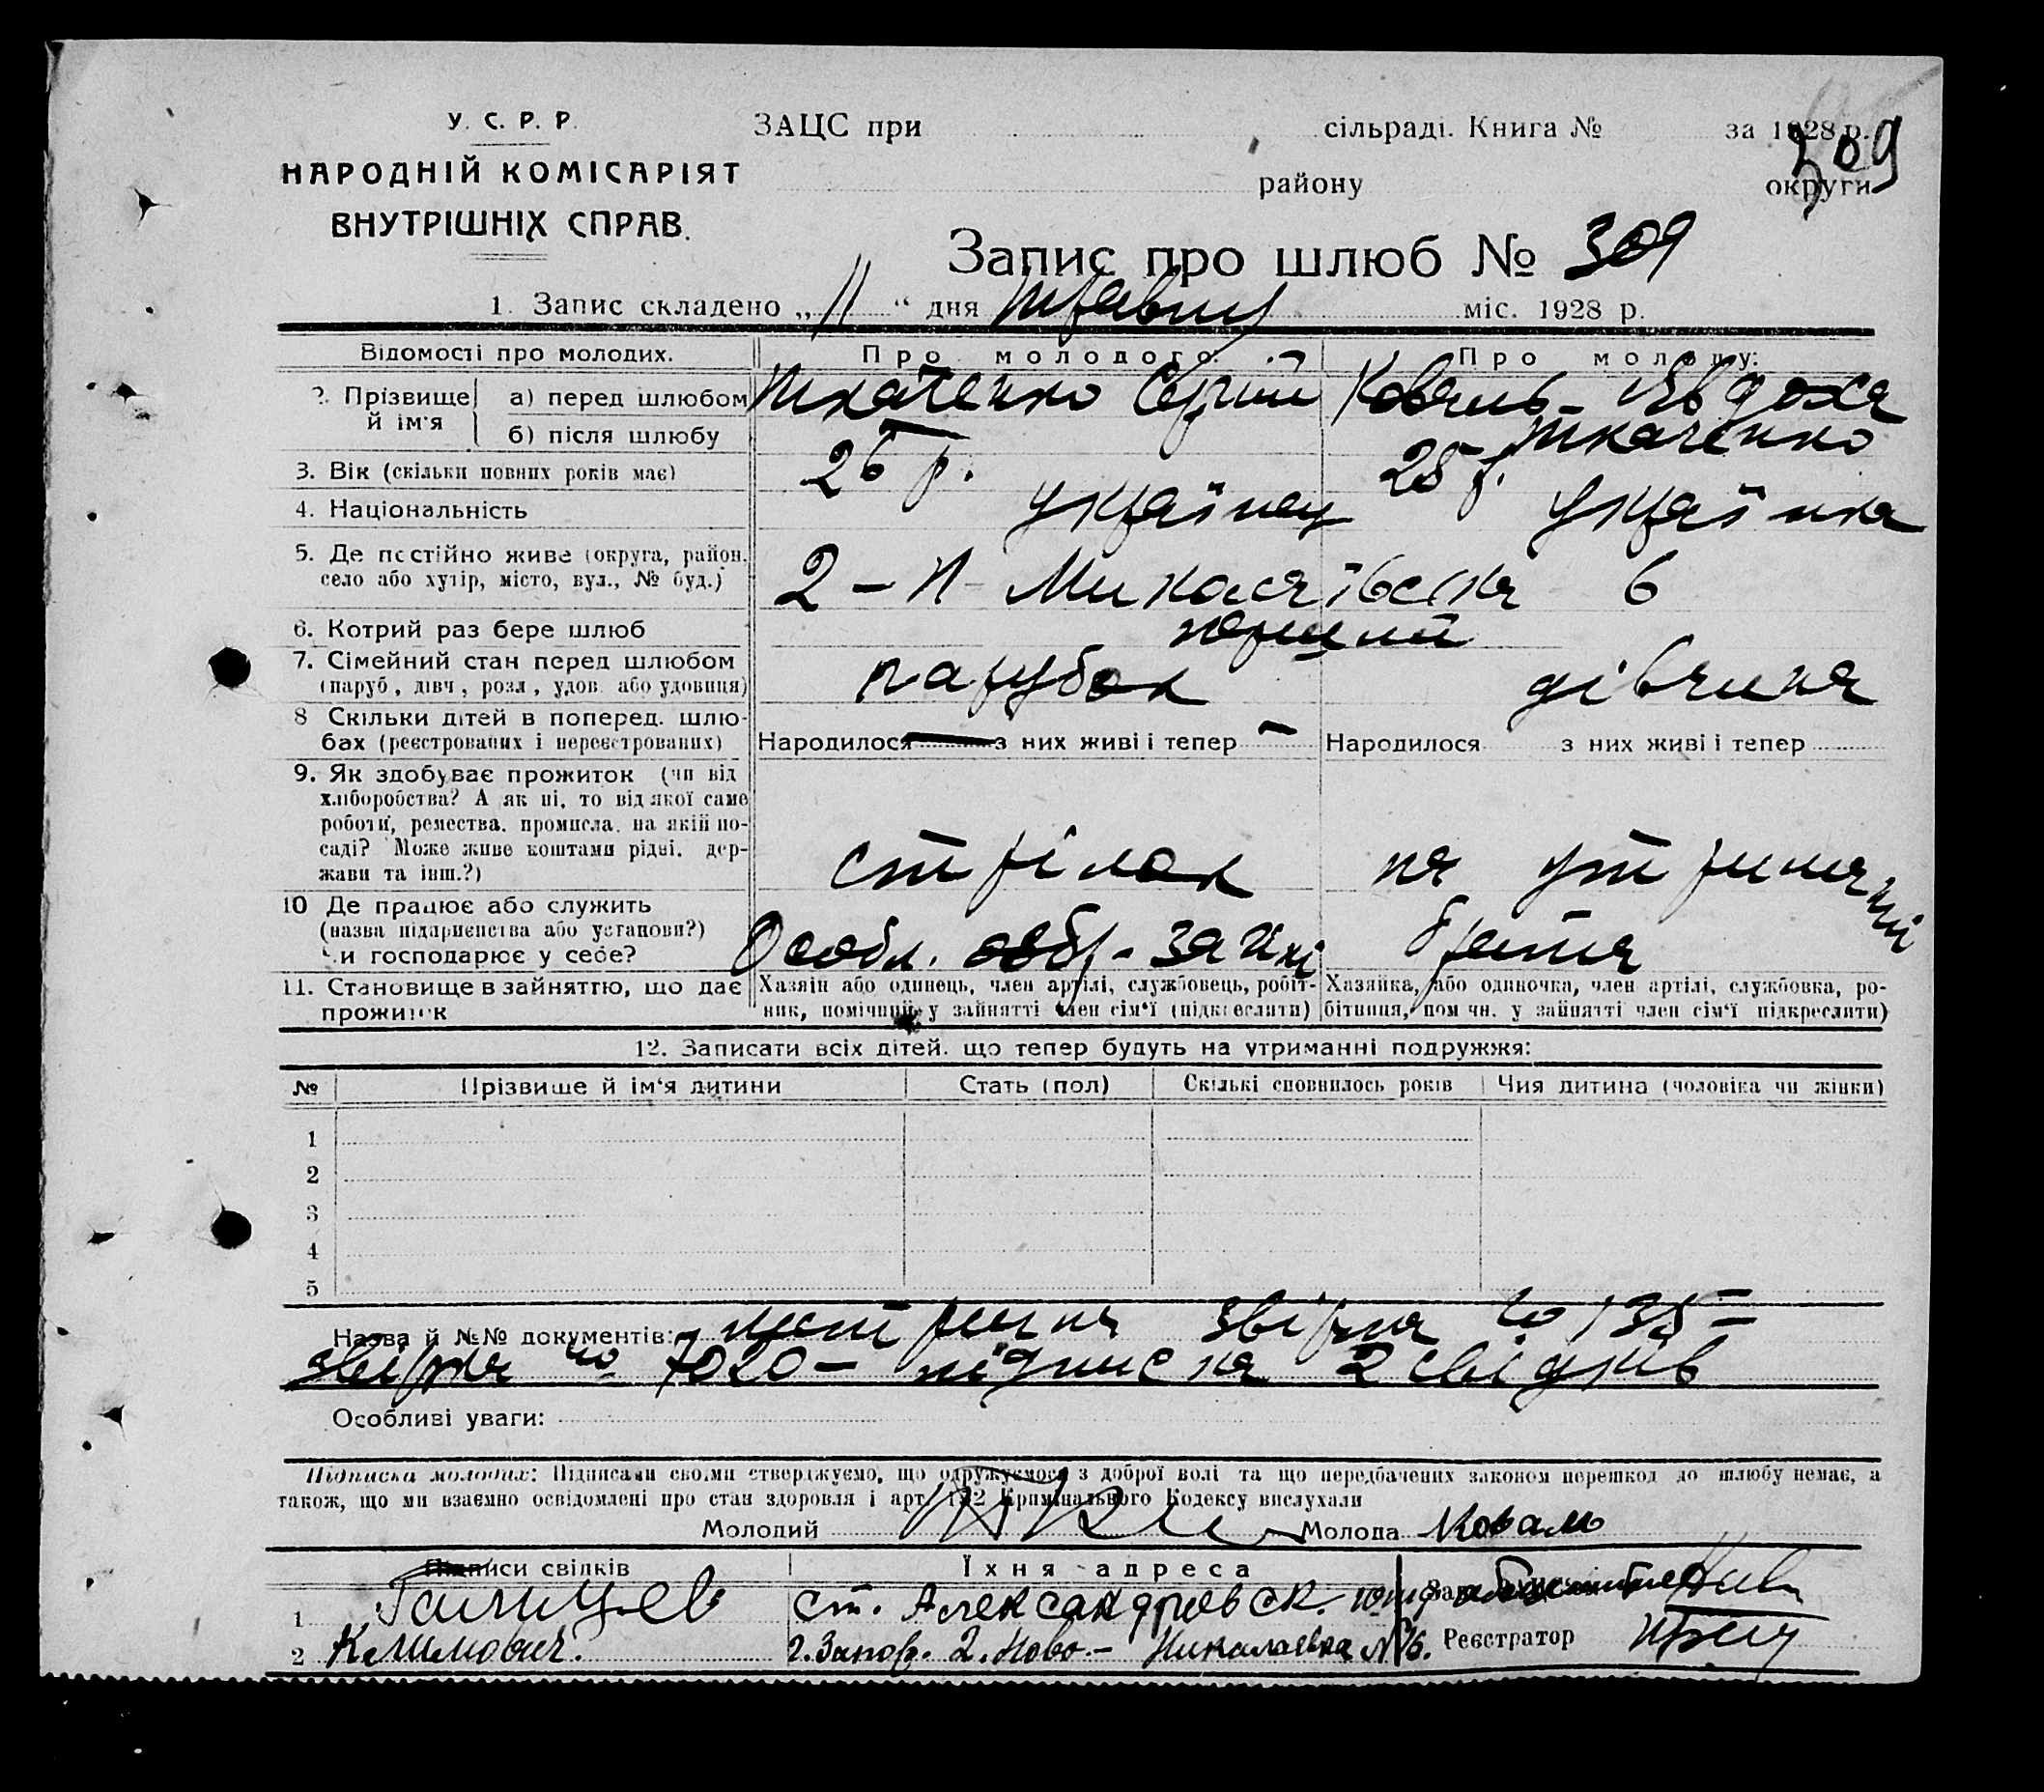 У. С. Р. Р.
НАРОДНІЙ КОМІСАРІЯТ
ВНУТРІШНІХ СПРАВ.
ЗАЦС при сільраді. Книга № за 1928 р.
району округи
309
Запис про шлюб № 309
1. Запис складено „11“ дня травня міс. 1928 р.
Відомості про молодих. Про молодого: Про молоду:
2. Прізвище й ім'я
а) перед шлюбом Ткаченко Сергій Коваль Явдоха
б) після шлюбу Ткаченко
3. Вік (скільки повних років має) 26 р. 25 р.
4. Національність українец українка
5. Де постійно живе (округа, район,
село або хутір, місто, вул., № буд.) 2-а Миколаївська 6
6. Котрий раз бере шлюб перший
7. Сімейний стан перед шлюбом
(паруб., дівч., розл., удов. або удовиця) парубок дівчина
8 Скільки дітей в поперед. шлю-
бах (реєстрованих і нереєстрованих) Народилося — з них живі і тепер — Народилося з них живі і тепер
9. Як здобуває прожиток (чи від
хліборобства? А як ні, то від якої саме
роботи, ремества, промисла, на якій по-
саді? Може живе коштами рідні, дер-
жави та інш.?) стрілок на утриманні
10 Де працює або служить
(назва підприємства або установи?)
Чи господарює у себе? Особл. брата
11. Становище в зайняттю, що дає
прожиток
Хазяін або одинець, член артілі, службовець, робіт-
ник, помічний у зайнятті член сім'ї (підкреслити)
Хазяйка, або одиночка, член артілі, службовка, ро-
бітниця, пом чн. у зайнятті член сім'ї підкреслити)
12. Записати всіх дітей, що тепер будуть на утриманні подружжя:
№ Прізвище й ім'я дитини Стать (пол) Скількі сповнилось років Чия дитина (чоловіка чи жінки)
1
2
3
4
5
Назва й №№ документів: звірка 135 –
звірка 7020 – підписка 2 свідків
Особливі уваги:
Підписка молодих: Підписами своїми стверджуємо, що одружуємося з доброї волі та що передбачених законом перешкод до шлюбу немає, а
також, що ми взаємно освідомлені про стан здоровля і арт. 152 Кримінального Кодексу вислухали
Молодий Молода Коваль
Підписи свідків Їхня адреса
1 ст. Александровск.
2 Климович. г. Запор. 2. Ново.- Николаевка № 6. Реєстратор